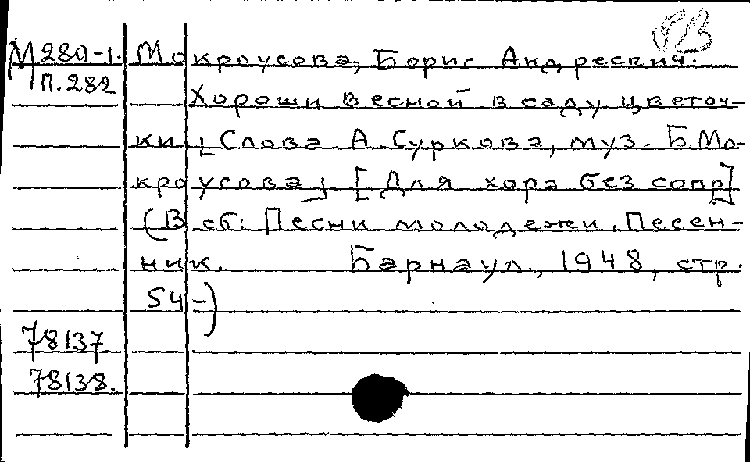 М 280-1. Мокроусова, Борис Андреевич.
П.282
Хороши весной в саду цветоч-
ки [Слова А. Суркова, муз. Б Мо-
кроусова]. [Для хора без сопр]
(В сб: Песни молодежи. Песен-
ник. Барнаул, 1948, стр.
54-)
78137
78138.